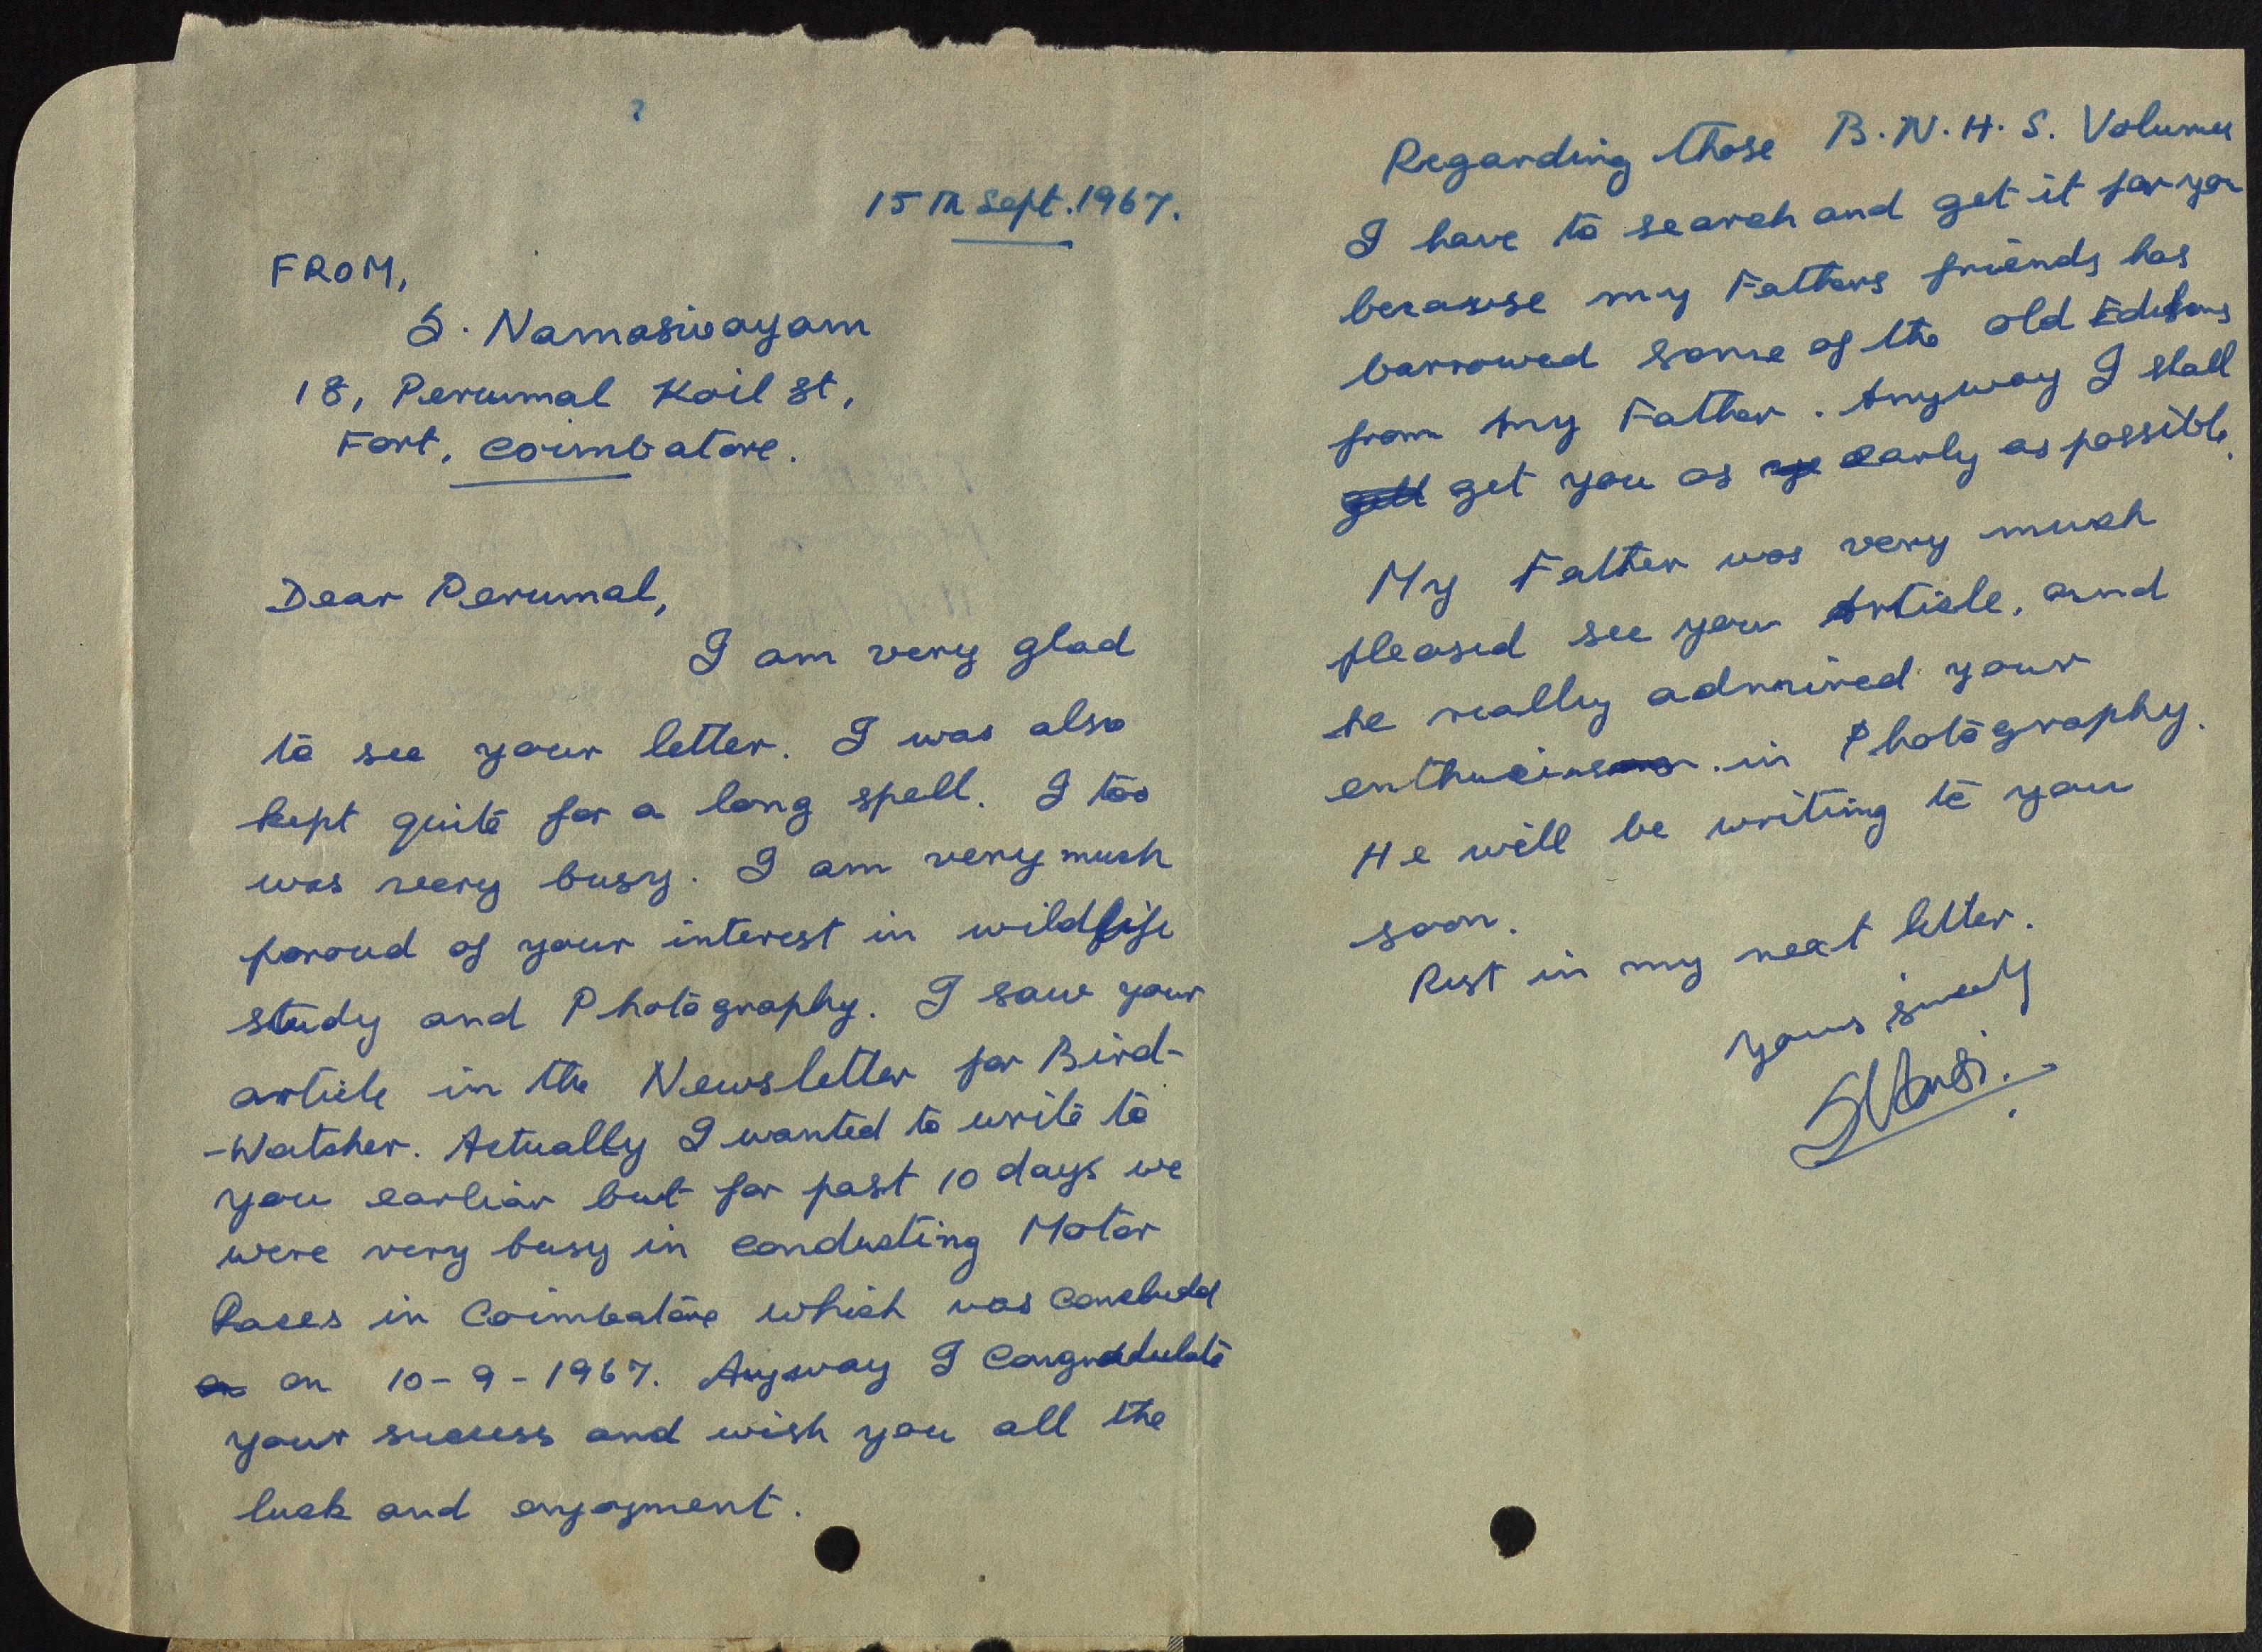 15th Sept. 1967.
FROM,
S. Namasivayam
18, Perumal Koil St,
Fort, Coimbatore.
Dear Perumal,
I am very glad
to see your letter. I was also
kept quite for a long spell. I too
was very busy. I am very much
proud of your interest in wildlife
study and Photography. I saw your
article in the Newsletter for Bird-
-Watcher. Actually I wanted to write to
you earliar but for past 10 days we
were very busy in conducting Motor
Races in Coimbatore which was concludd
on on 10-9-1967. Anyway I Congradulate
your success and wish you all the
luck and enjoyment.
Regarding those B.N.H.S. Volumes
I have to search and get it for you
because my Fathers friends has
barrowed some of the old Editions
from my Father. Anyway I shall
get you as early as possible.
My Father was very much
pleased see your Article, and
he really admired your
in Photography.
He will be writing to you
soon.
Rest in my next letter.
Yours